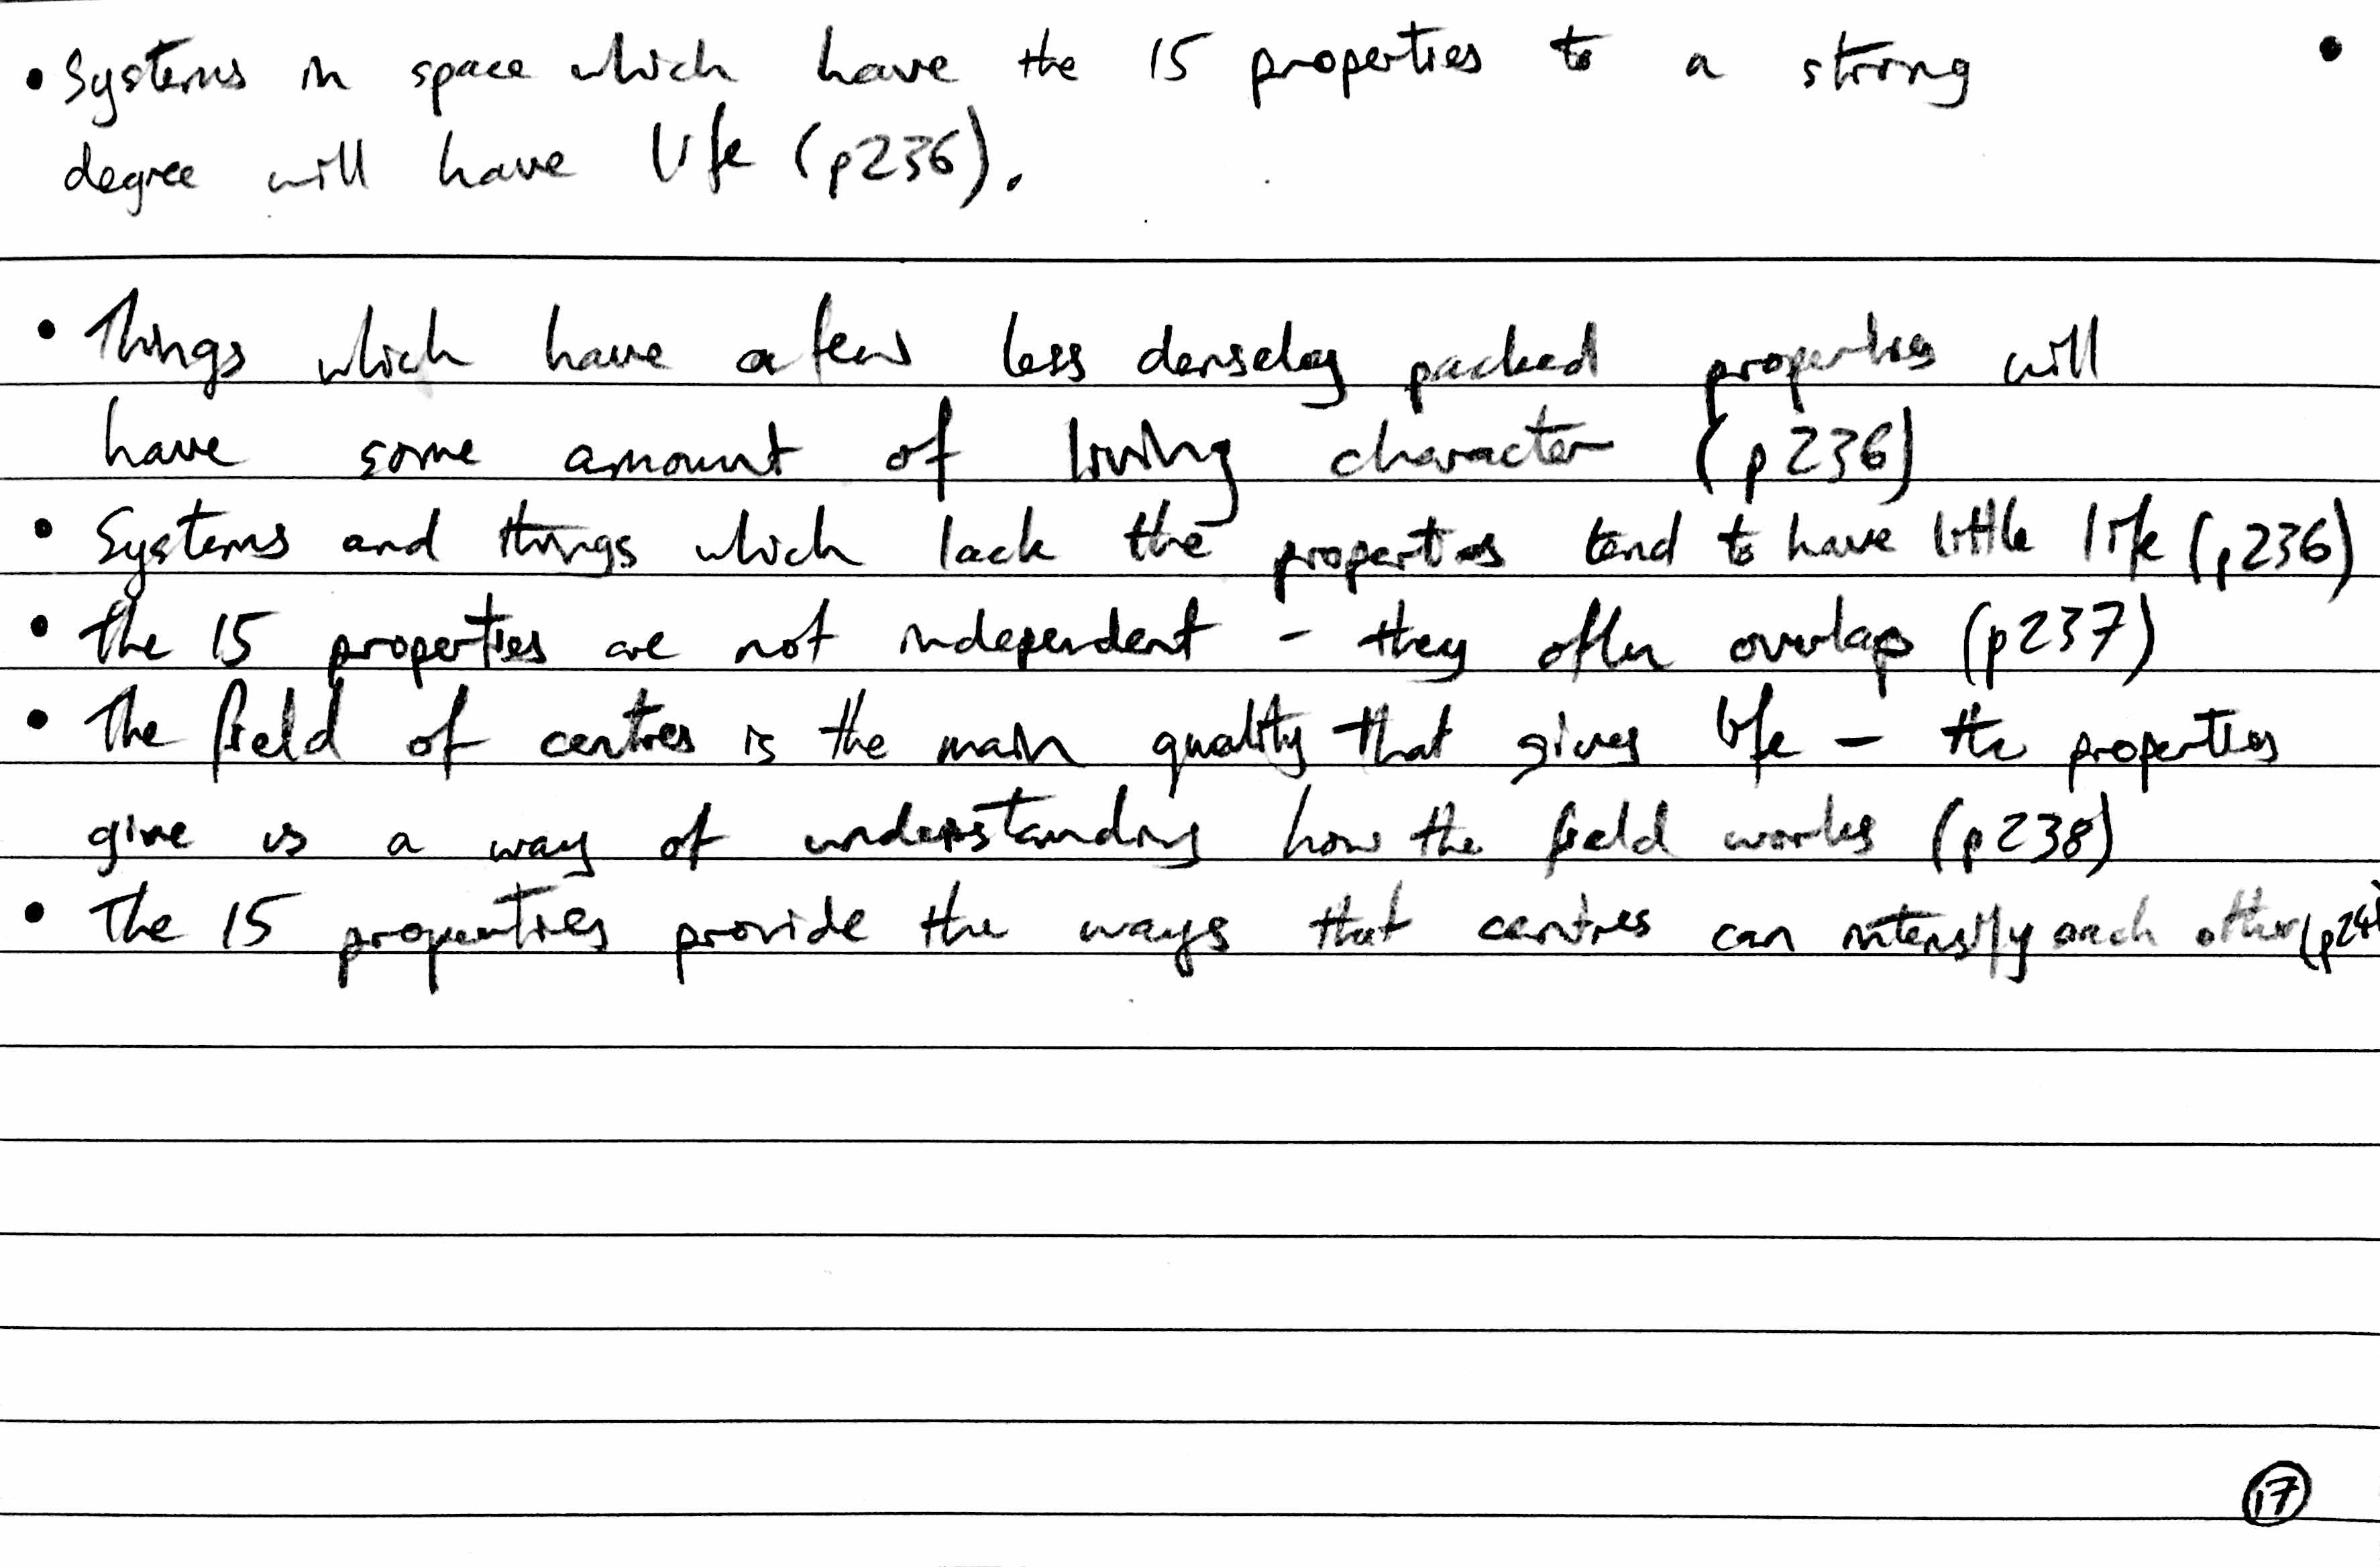 • Systems in space which have the 15 properties to a strong
degree will have life (p236).
• Things which have a few less densely packed properties will
have some amount of living character (p236)
• Systems and things which lack the properties tend to have little life (p236)
• The 15 properties are not independent - they often overlap (p237)
• The field of centres is the main quality that gives life - the properties
give us a way of understanding how the field works (p238)
• The 15 properties provide the ways that centres can intensify each other (p241
17